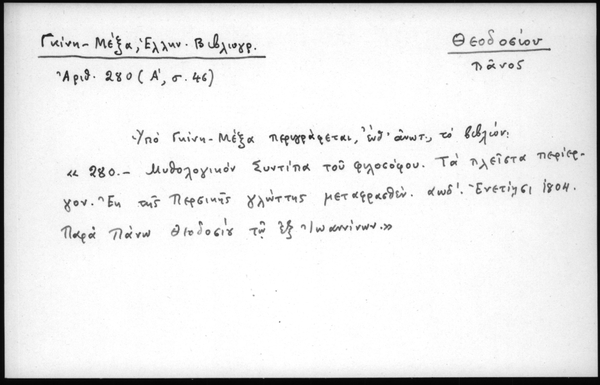 Γκίνη - Μέξα, Ἑλλην. Βιβλιογρ.
Θεοδοσίου
Πᾶνος
Ἀριθ. 280 (Α', σ. 46)
Ὑπό Γκίνη-Μέξα περιγράφεται, ἐνθ' ἀνωτ., τό βιβλίον:
« 280.- Μυθολογικόν Συντίπα τοῦ φιλοσόφου. Τά πλεῖστα περίερ-
γον. Ἐκ τῆς Περσικῆς γλώττης μεταφρασθέν. αωδ'. Ἐνετίῃσι 1804.
Παρά Πάνῳ Θεοδοσίου τῷ ἐξ Ἰωαννίνων.»